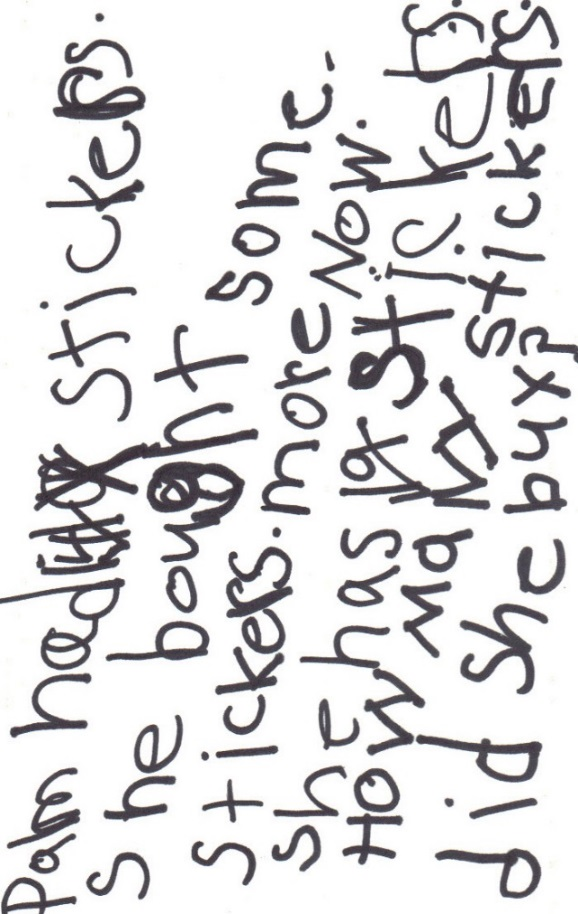 Palm had stickers.
She bought some.
stickers. more Now.
She has stickers.
How Many stickers.
did she buy?